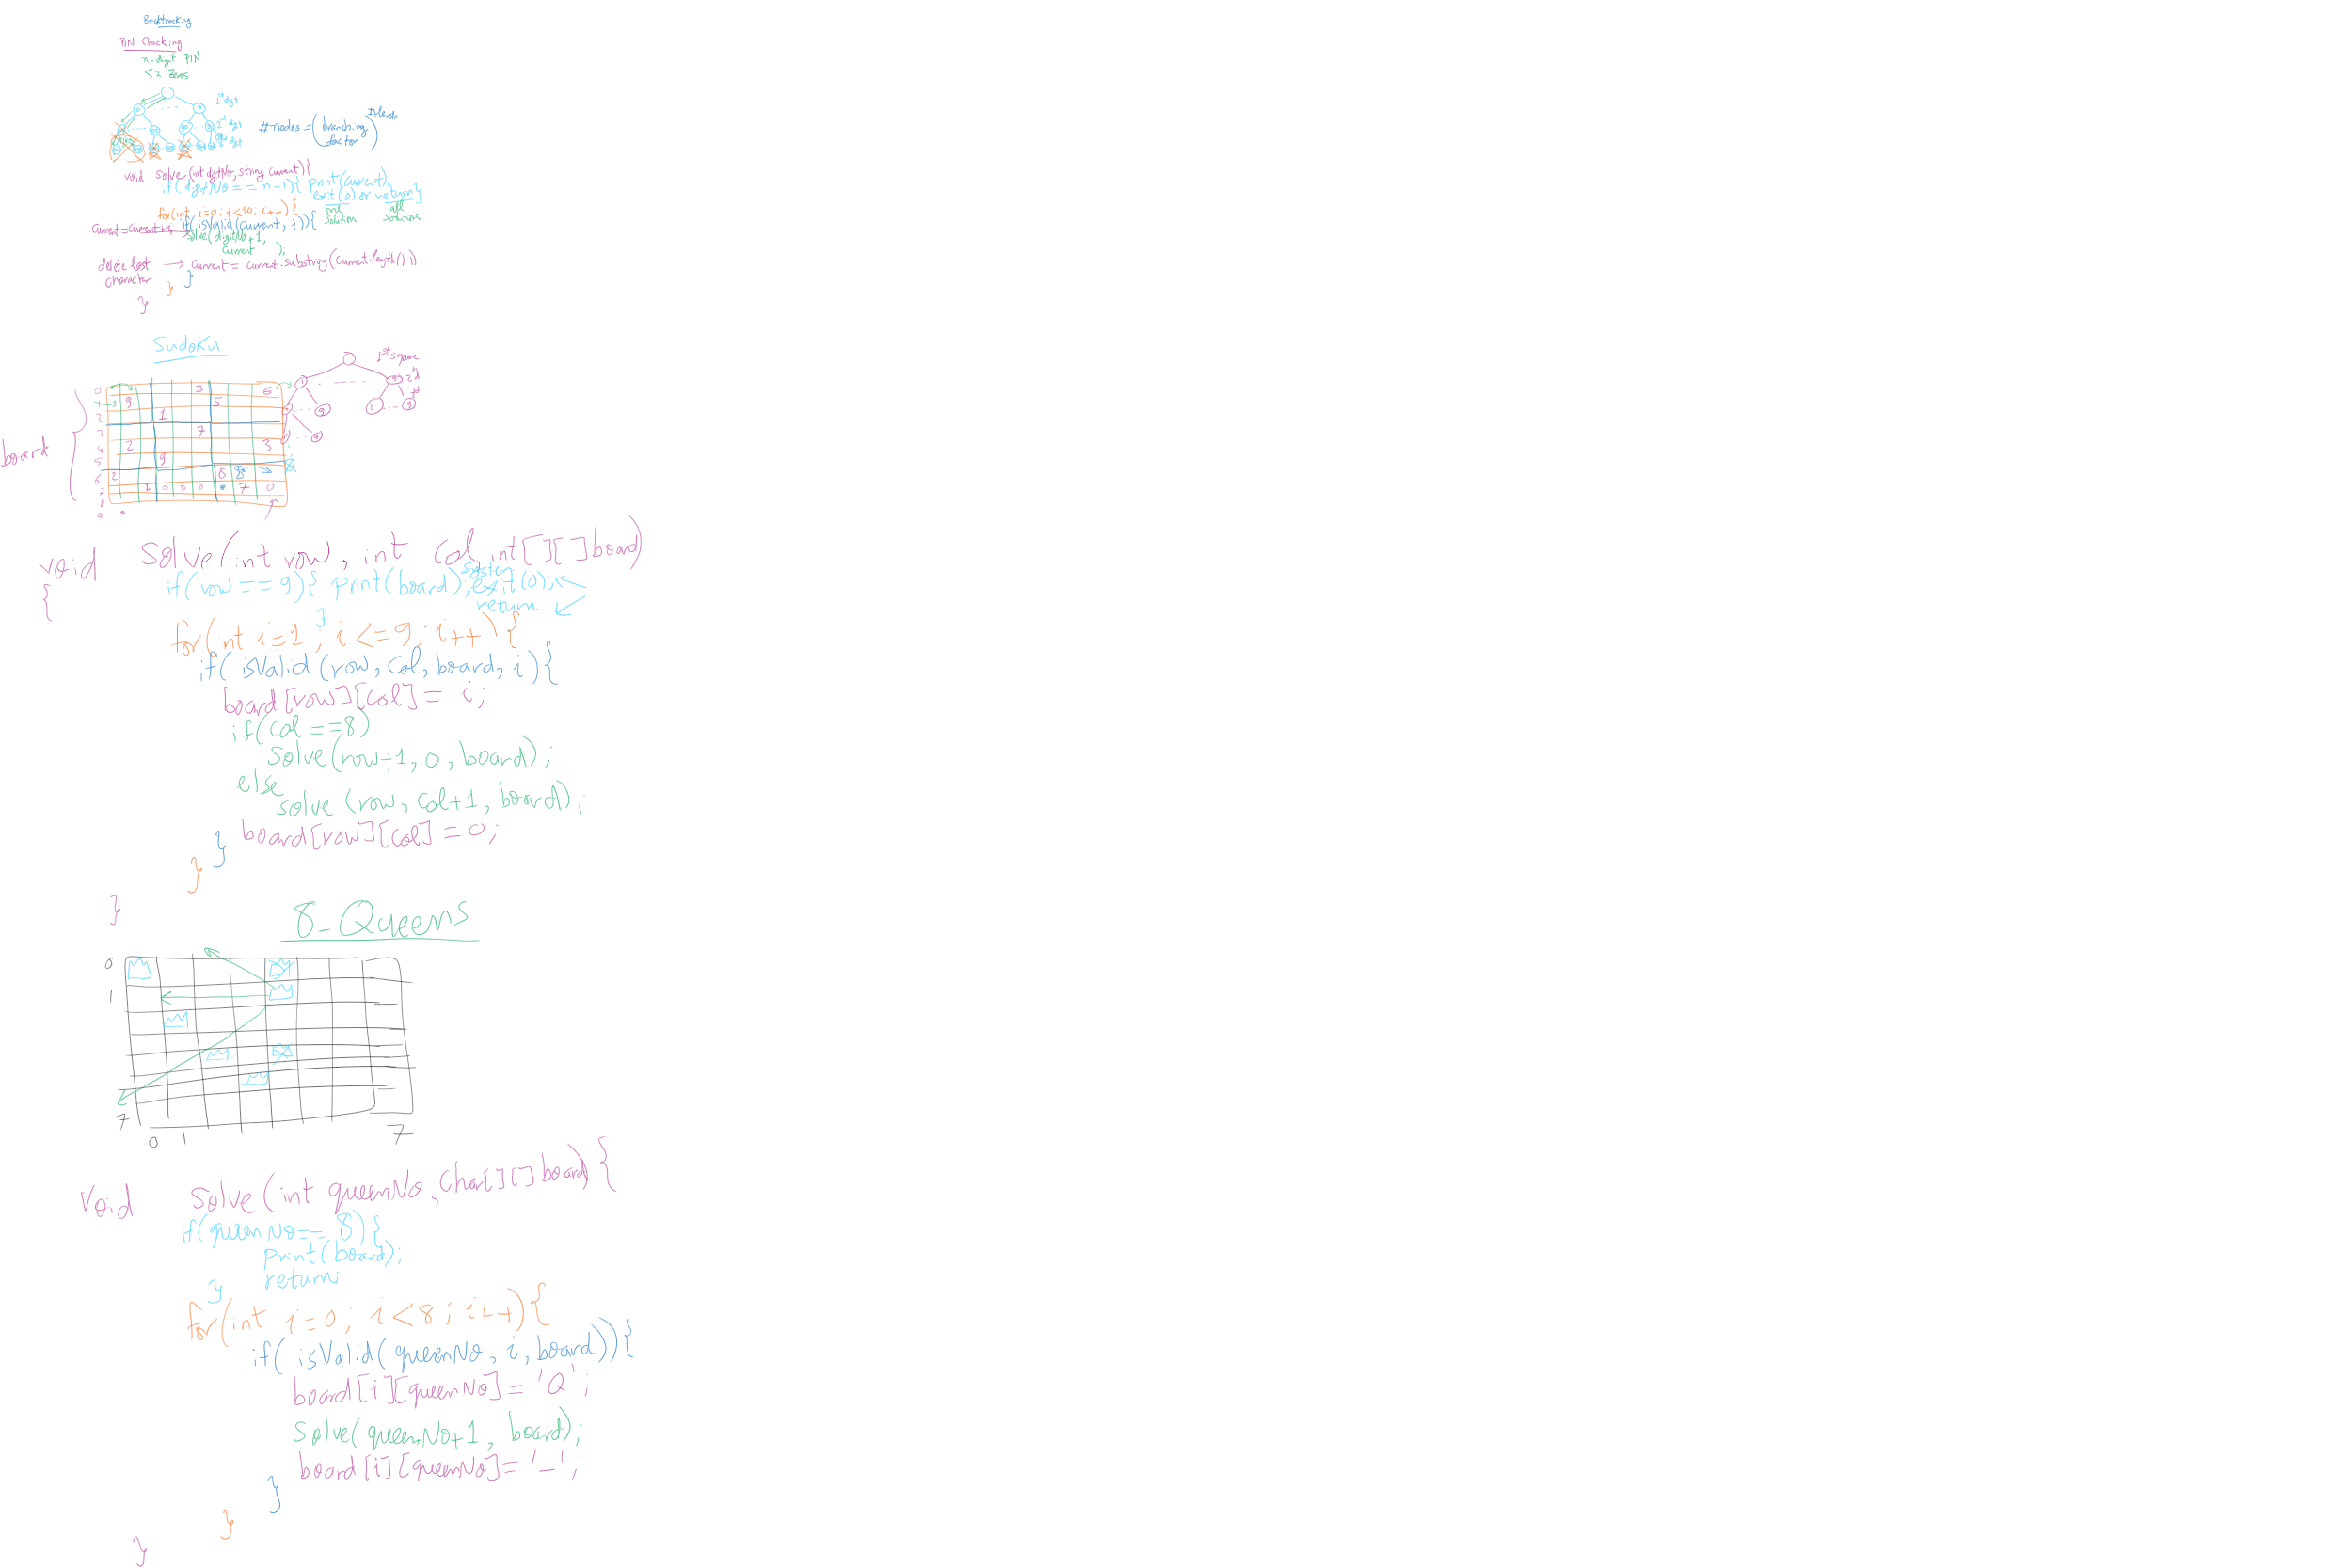 Backtracking
PIN Cracking
n-digit PIN
<2 Zeros
1st digit
2nd digit
3rd digit
#nodes = (branching factor)^#levels
void solve(int digitNo, string current){
if(digitNo == n-1){ print(current);
exit(0) or return}
one solution
all solutions
for(int i=0; i<10; i++){
current=current+i; if(isValid(current, i)){
solve(digitNo+1,
current );
delete last character → current = current.substring(current.length()-1)
}
}
}
Sudoku
1st square
2nd
3rd
board
0 3 6
1 9 5
2 1
3 7
4 2 3
5 9
6 2 8 8
7 1 0 0 0 7 0
8
9
void solve(int row, int col, int[][]board)
{
if(row == 9){ print(board); system exit(0);
return
}
for(int i=1; i<=9; i++){
if(isValid(row, col, board, i){
board[row][col] = i;
if(col ==8)
solve(row+1, 0, board);
else
solve(row, col+1, board);
board[row][col] = 0;
}
}
}
8-Queens
0
1
7
0 1 7
void solve(int queenNo, char[][]board){
if(queenNo== 8){
print(board);
return;
}
for(int i=0; i<8; i++){
if( isValid(queenNo, i, board)){
board[i][queenNo] = 'Q';
solve(queenNo+1, board);
board[i][queenNo]='_';
}
}
}